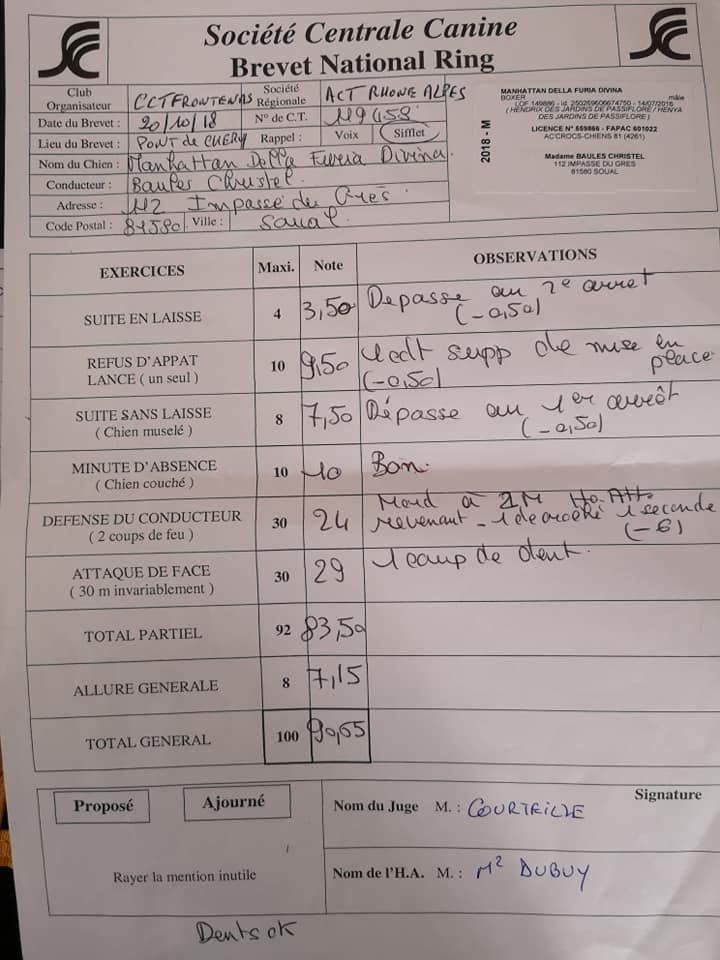 Société Centrale Canine
Brevet National Ring
Club Organisateur CCTFRONTENAS Société Régionale ACT RHONE ALPES
Date du Brevet : 20/10/18 N° de C.T. 119458
Lieu du Brevet : PONT de CHERY Rappel : Voix Sifflet
Nom du Chien : Manhattan Della Furia Divina
Conducteur : Baules Christel
Adresse : 112 Impasse du Grès
Code Postal : 81580 Ville : Soual
2018 - M
MANHATTAN DELLA FURIA DIVINA
BOXER mâle
LOF 149886 - id. 250269606674750 - 14/07/2016
( HENDRIX DES JARDINS DE PASSIFLORE / HENYA
DES JARDINS DE PASSIFLORE )
LICENCE N° 559866 - FAPAC 601022
AC'CROCS-CHIENS 81 (4261)
Madame BAULES CHRISTEL
112 IMPASSE DU GRES
81580 SOUAL
EXERCICES Maxi. Note OBSERVATIONS
SUITE EN LAISSE 4 3,50 Depasse au 2e arret
(-0,50)
REFUS D'APPAT
LANCE ( un seul ) 10 9,50 1 cdt supp de mise en place
(-0,50)
SUITE SANS LAISSE
( Chien muselé ) 8 7,50 Dépasse au 1er arrêt
(-0,50)
MINUTE D'ABSENCE
( Chien couché ) 10 10 Bon.
DEFENSE DU CONDUCTEUR
( 2 coups de feu ) 30 24 Mord à 2M
revenant - 1 seconde
(-6)
ATTAQUE DE FACE
( 30 m invariablement ) 30 29 1 coup de dent.
TOTAL PARTIEL 92 83,50
ALLURE GENERALE 8 7,15
TOTAL GENERAL 100 90,65
Proposé Ajourné
Rayer la mention inutile
Signature
Nom du Juge M. : COURTEILLE
Nom de l'H.A. M. : DUBUY
Dents ok